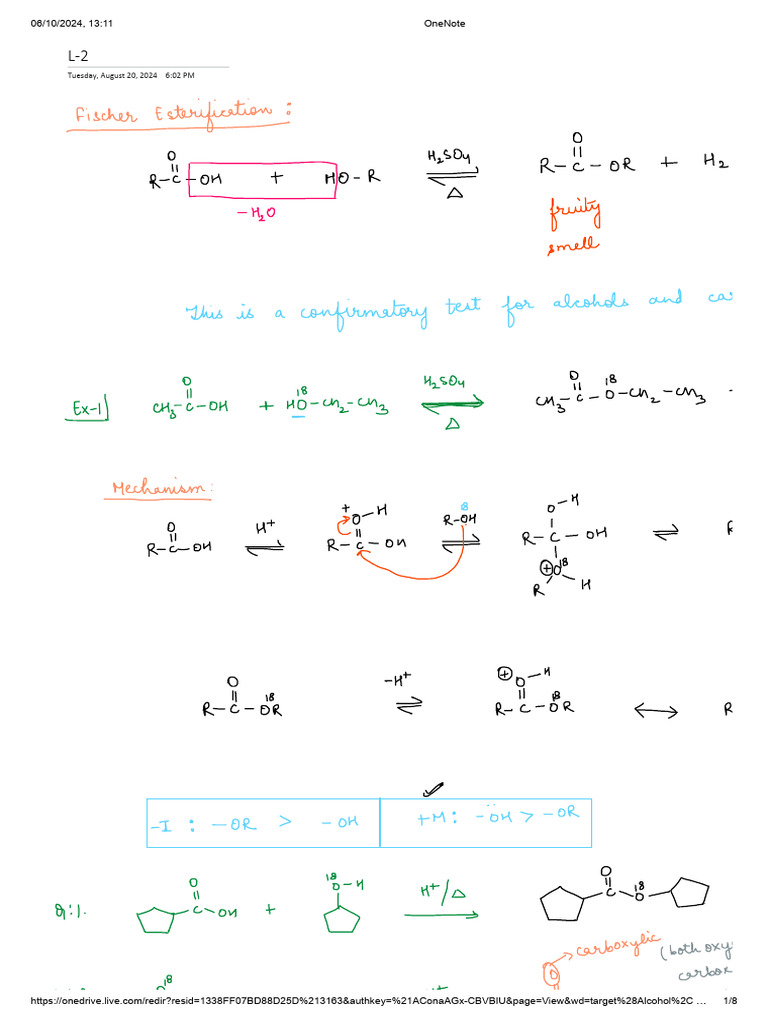 06/10/2024, 13:11 OneNote
L-2
Tuesday, August 20, 2024 6:02 PM
Fischer Esterification :
O O
R-C-OH + HO-R H2SO4 Δ R-C-OR + H2
-H2O
fruity
smell
This is a confirmatory test for alcohols and
Ex-1 CH3-C-OH + HO18-CH2-CH3 H2SO4 Δ CH3-C-O18-CH2-CH3
O O
Mechanism:
R-C-OH H+ R-C-OH R-OH R-C-OH
O +O-H 18 O-H
⊕O18
R H
O 18 -H+ ⊕O-H 18
R-C-OR R-C-OR ↔ R
-I : -OR > -OH +M: -ÖH > -OR
Q:1. O C-OH + 18 O-H H+/Δ O C 18 O
O → carboxylic (both oxy
carbox
18
O
https://onedrive.live.com/redir?resid=1338FF07BD88D25D%213163&authkey=%21AConaAGx-CBVBIU&page=View&wd=target%28Alcohol%2C … 1/8